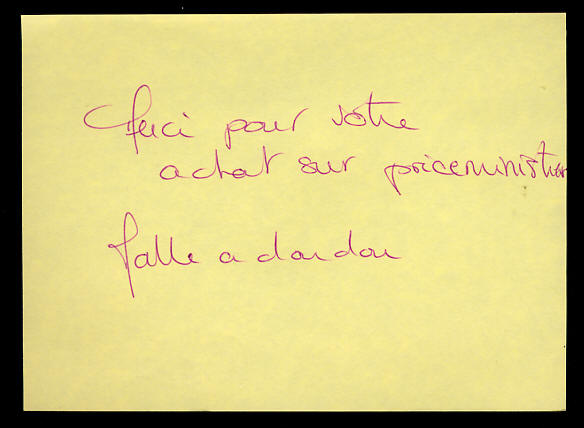 Merci pour votre
achat sur priceminister
falle a doudou